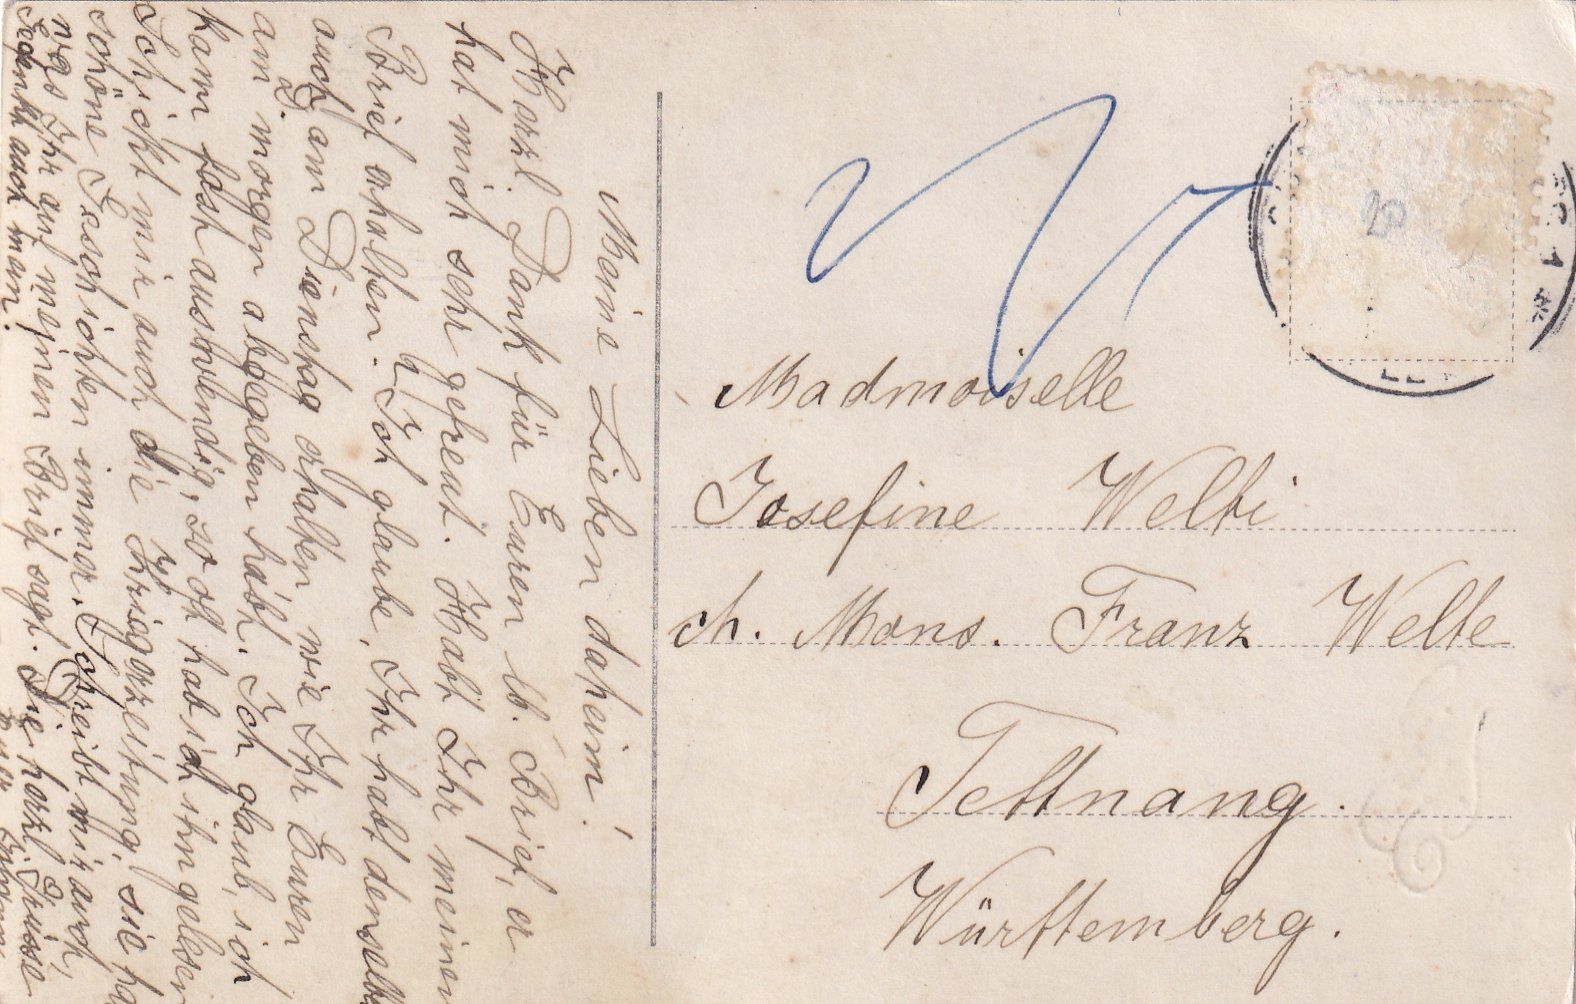 Meine Lieben daheim!
Herzl. Dank für Euren lb. Brief, er
hat mich sehr gefreut. Habt Ihr meinen
Brief erhalten. Ich glaube, Ihr habt denselb
auch am Dienstag erhalten wie Ihr Euren
am morgen abgegeben habt. Ich glaub, ich
kann fast auswendig, so oft hab ich ihn gelesen
Schickt mir auch die Kriegerzeitung, sie ha
schöne Geschichten immer. Schreibt mir auch,
was Ihr auf meinen Brief sagt. Die herzl. Grüsse
Gedenkt auch mein. Eurer
Madmoiselle
Josefine Welti
ch. Mons. Franz Welte
Tettnang.
Württemberg.
20